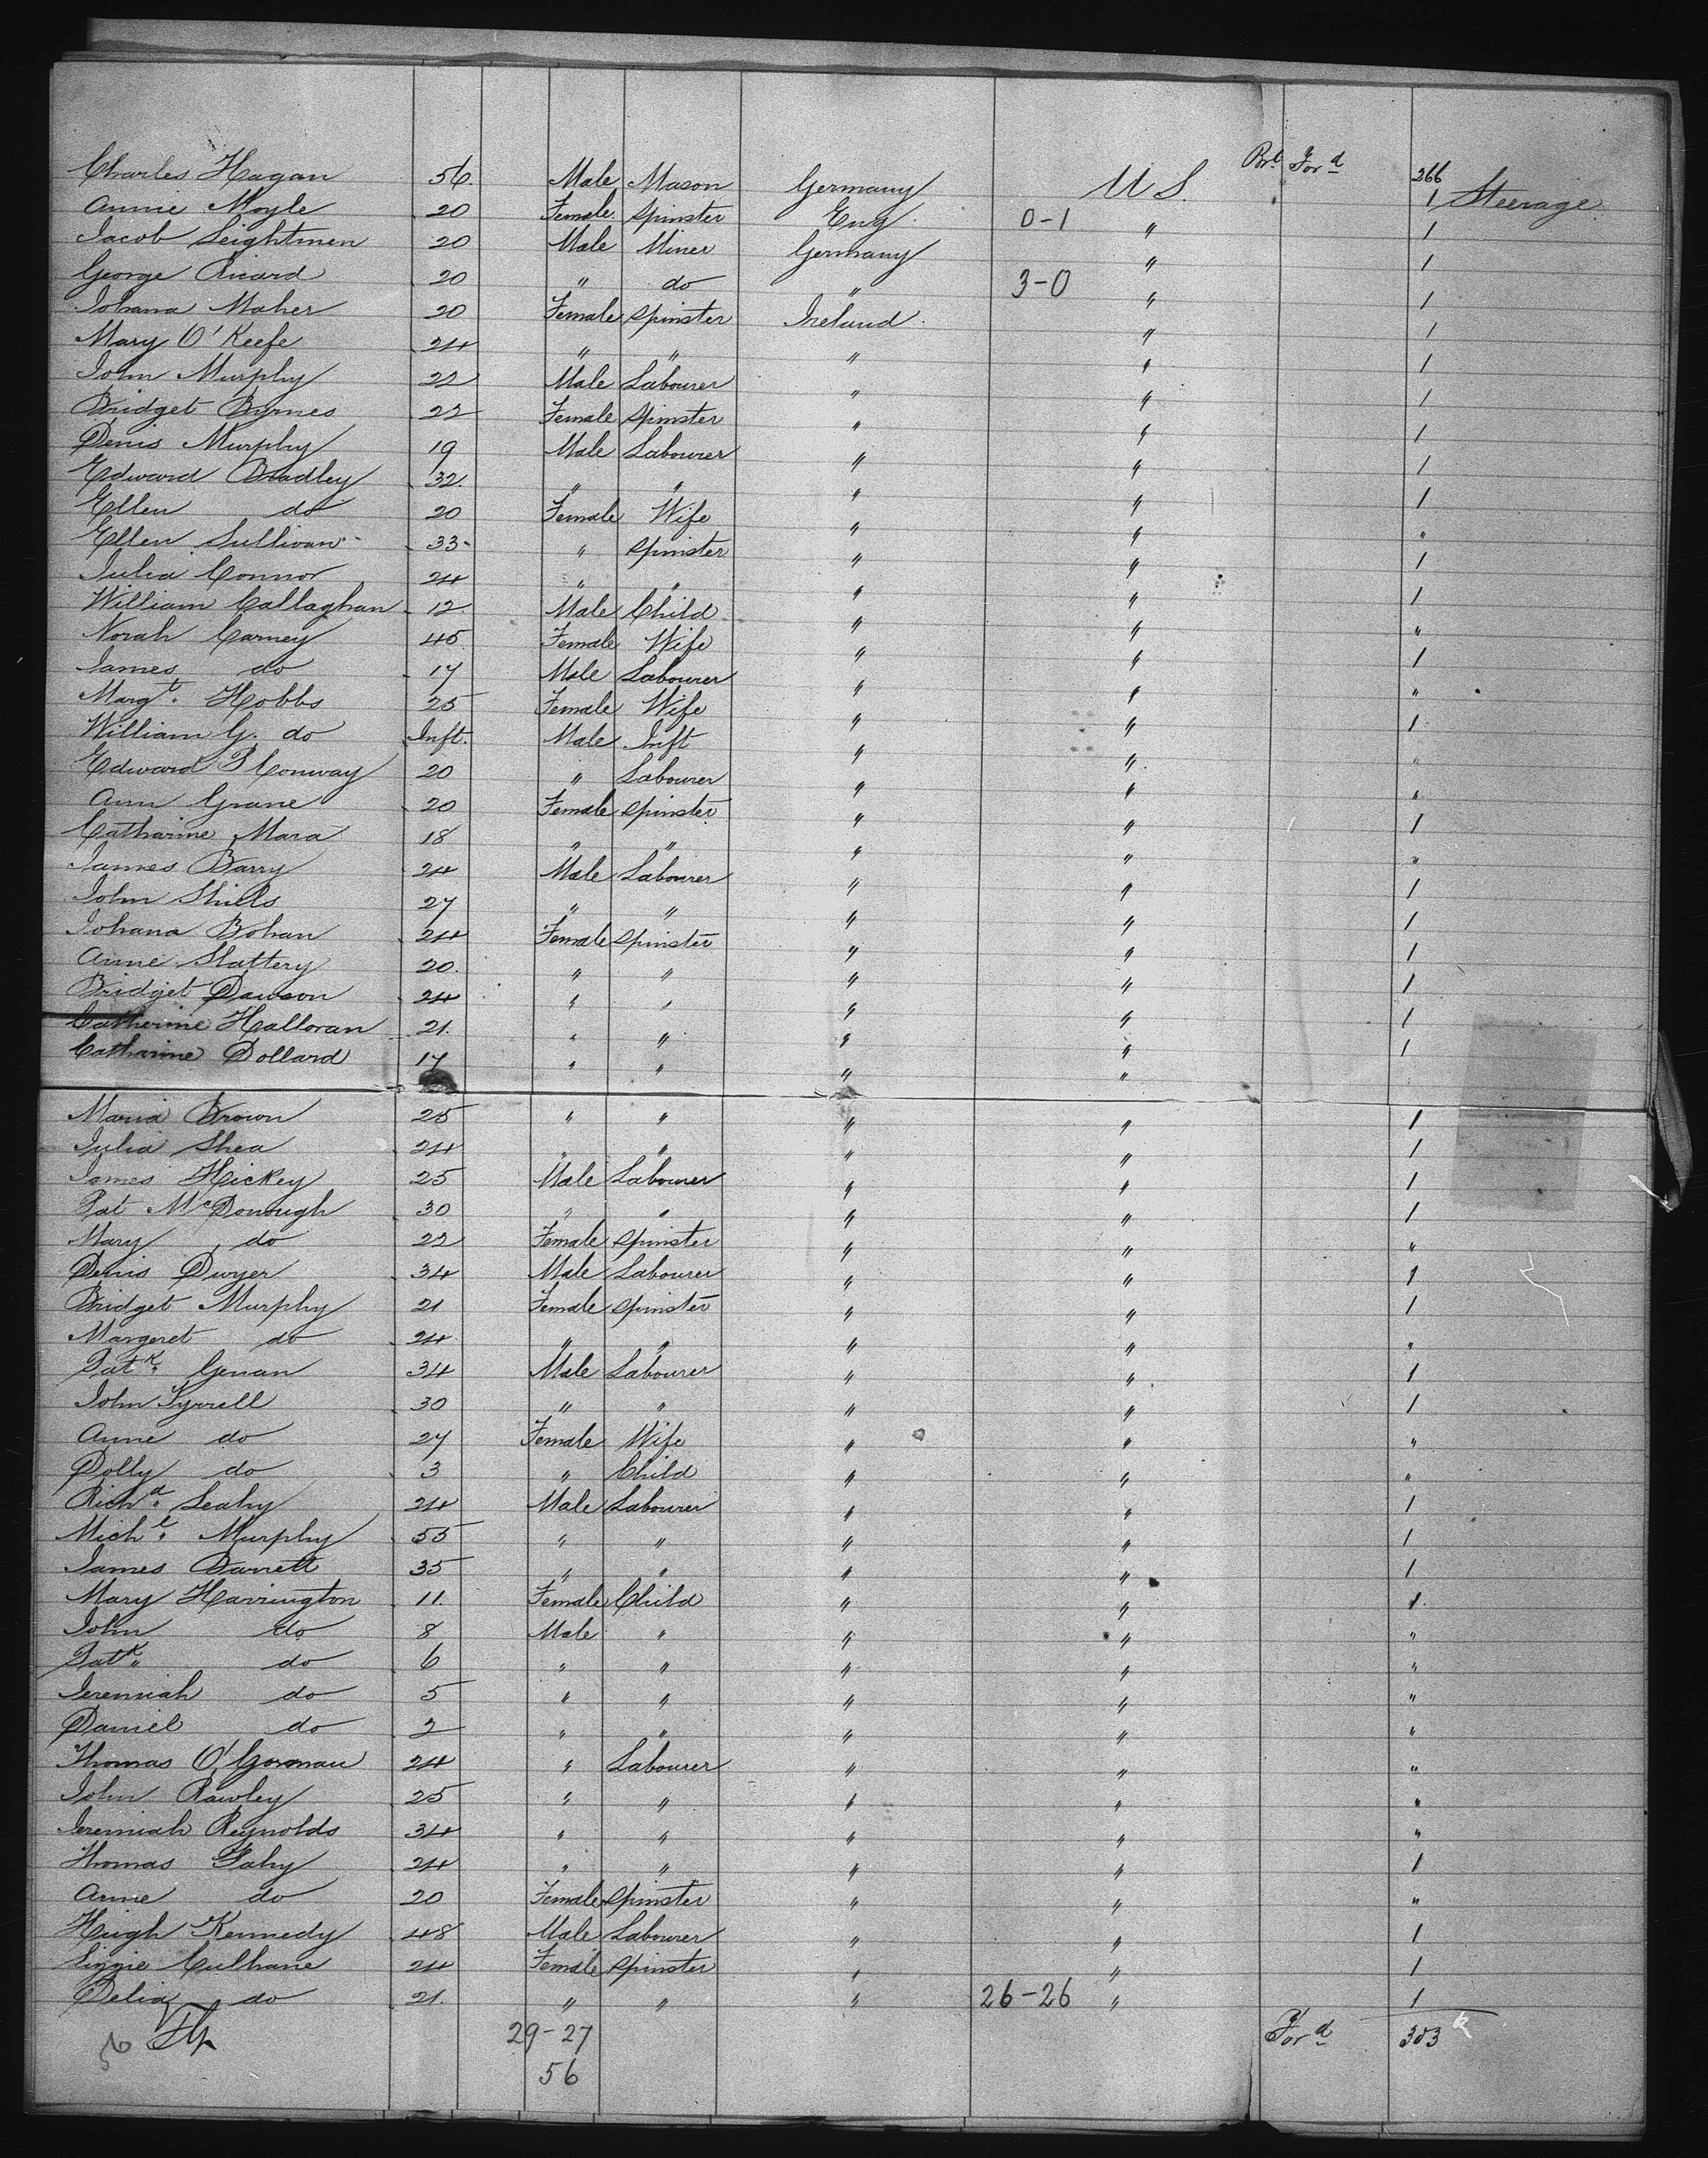 Brt Ford 266
Charles Hagan 56. Male Mason Germany U S. 1 Steerage
Annie Moyle 20 Female Spinster Eng. 0-1 " 1
Jacob Leightmen 20 Male Miner Germany " 1
George Ricard 20 " do " 3-0 " 1
Johana Maher 20 Female Spinster Ireland. " 1
Mary O'Keefe 24 " " " " 1
John Murphy 22 Male Labourer " " 1
Bridget Byrnes 22 Female Spinster " " 1
Denis Murphy 19 Male Labourer " " 1
Edward Bradley 32. " " " " 1
Ellen do 20 Female Wife " " "
Ellen Sullivan 33 " Spinster " " 1
Julia Connor 24 " " " " 1
William Callaghan 12. Male Child " " "
Norah Carney 45 Female Wife " " 1
James do 17 Male Labourer " " "
Margt. Hobbs 25 Female Wife " " 1
William G. do Inft. Male Inft " " "
Edward P Conway 20 " Labourer " " "
Ann Grane 20 Female Spinster " " 1
Catharine Mara 18 " " " " "
James Barry 24 Male Labourer " " 1
John Shiels 27 " " " " 1
Johana Bohan 24 Female Spinster " " 1
Anne Slattery 20. " " " " 1
Bridget Dawson 24 " " " " 1
Catherine Halloran 21. " " " " 1
Catharine Dollard 17 " " " "
Maria Brown 25 " " " " 1
Julia Shea 24 " " " " 1
James Hickey 25 Male Labourer " " 1
Pat McDonough 30 " " " " 1
Mary do 22 Female Spinster " " "
Denis Dwyer 34 Male Labourer " " 1
Bridget Murphy 21 Female Spinster " " 1
Margeret do 24 " " " " "
Patk. Genan 34 Male Labourer " " 1
John Tyrrell 30 " " " " 1
Anne do 27 Female Wife " " "
Dolly do 3 " Child " " "
Richd. Leahy 24 Male Labourer " " 1
Michl. Murphy 55 " " " " 1
James Barrett 35 " " " " 1
Mary Harrington 11. Female Child " " 1
John do 8 Male " " " "
Patk do 6 " " " " "
Jeremiah do 5 " " " " "
Daniel do 2 " " " " "
Thomas O'Gorman 24 " Labourer " " "
John Rawley 25 " " " " "
Jeremiah Reynolds 34 " " " " "
Thomas Fahy 24 " " " " 1
Anne do 20 Female Spinster " " "
Hugh Kennedy 48 Male Labourer " " 1
Lizzie Culhane 24 Female Spinster " " 1
Delia do 21. " " " 26-26 " 1
56 29-27 Ford 303
56